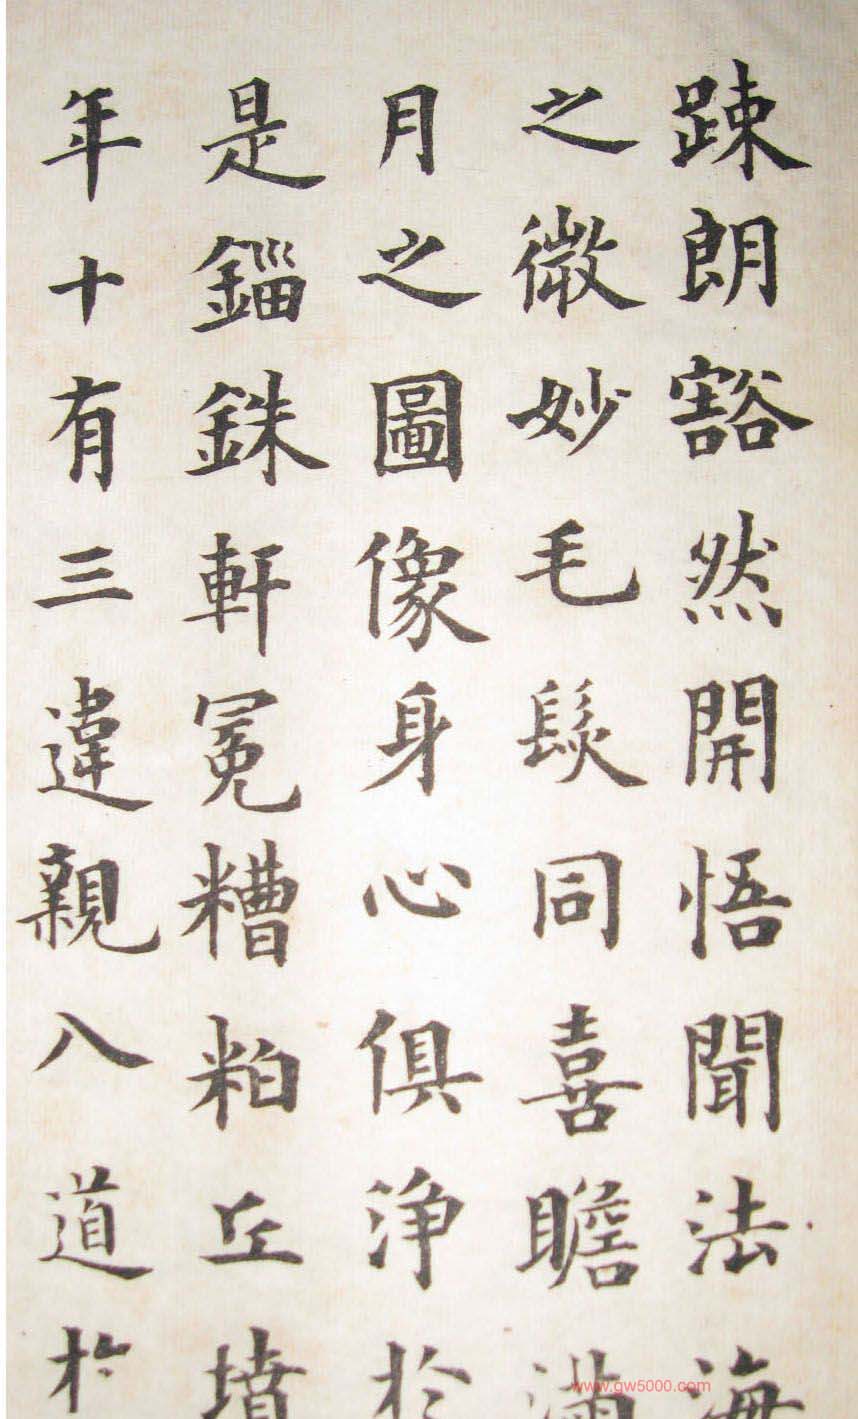 踈朗豁然開悟聞法海
之微妙毛髮同喜瞻滿
月之圖像身心俱淨於
是錙銖軒冕糟粕丘墳
年十有三違親入道於
www.gw5000.com